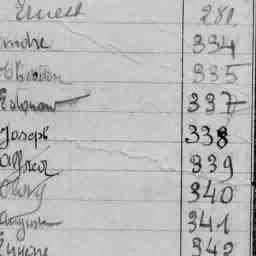 Ernest 281
André 334
335
337
Joseph 338
Alfred 339
340
341
Eugène 342